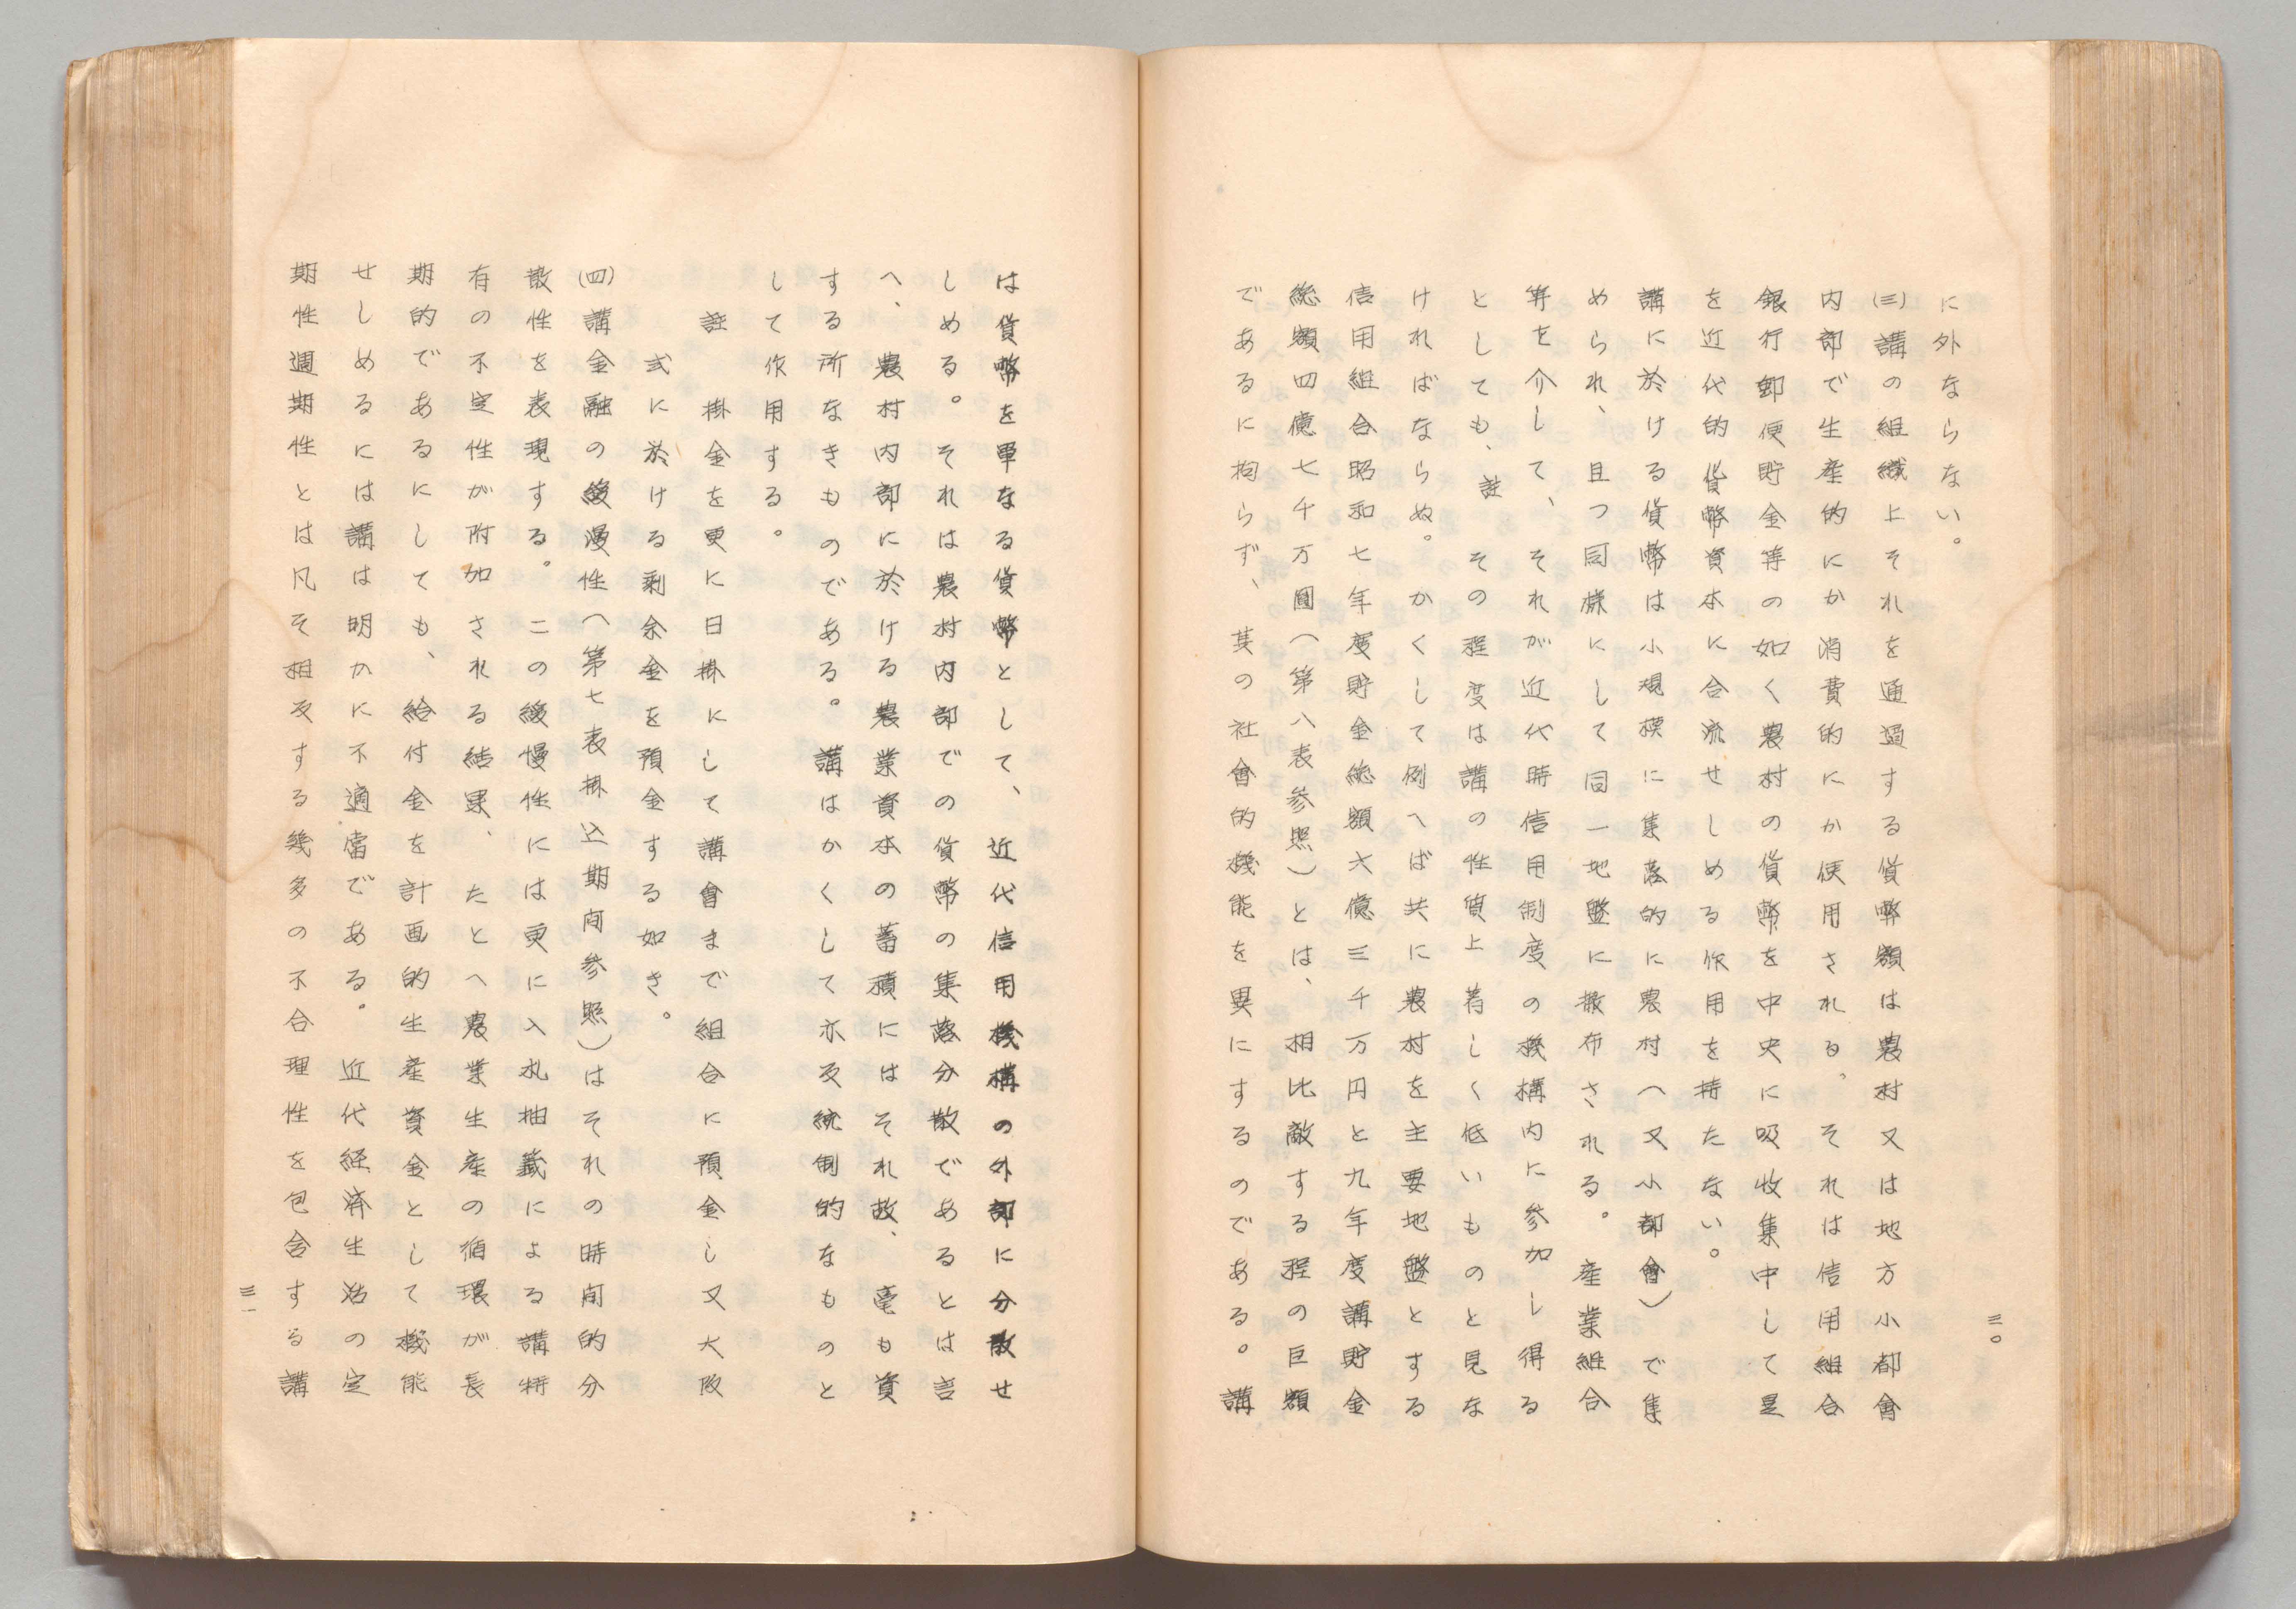 に外ならない。
(三)講の組織上それを通過する貨幣額は農村又は地方小都會
内部で生産的にか消費的にか使用される。それは信用組合
銀行郵便貯金等の如く農村の貨幣を中央に吸收集中して是
を近代的貨幣資本に合流せしめる作用を持たない。
講に於ける貨幣は小規模に集落的に農村(又小都會)で集
められ、且つ同様にして同一地盤に撒布される。産業組合
等を介して、それが近代時信用制度の機構内に参加し得る
としても、註 その程度は講の性質上著しく低いものと見な
ければならぬ。かくして例へば共に農村を主要地盤とする
信用組合昭和七年度貯金総額六億三千万円と九年度講貯金
総額四億七千万圓(第八表参照)とは、相比敵する程の巨額
であるに拘らず、其の社會的機能を異にするのである。講
三〇
は貨幣を単なる貨幣として、近代信用機構の外部に分散せ
しめる。それは農村内部での貨幣の集落分散であるとは言
へ、農村内部に於ける農業資本の蓄積にはそれ故、毫も資
する所なきものである。講はかくして亦反統制的なものと
して作用する。
註 掛金を更に日掛にして講會まで組合に預金し又大阪
式に於ける剰余金を預金する如き。
(四)講金融の緩漫性(第七表掛込期間参照)はそれの時間的分
散性を表現する。この緩慢性には更に入札抽籤による講特
有の不定性が附加される結果、たとへ農業生産の循環が長
期的であるにしても、給付金を計画的生産資金として機能
せしめるには講は明かに不適當である。近代経済生活の定
期性週期性とは凡そ相反する幾多の不合理性を包含する講
三一